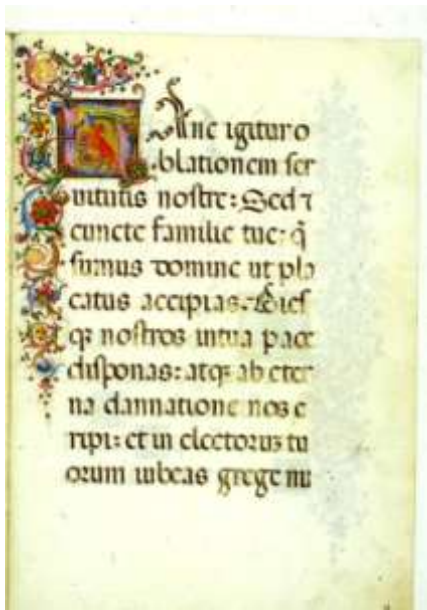 Hanc igitur o
blationem ser
uitutis nostre: Sed ⁊
cuncte familie tue: q̃
sumus domine ut pla
catus accipias. Dies
qꝫ nostros in tua pace
disponas: atqꝫ ab eter
na dannatione nos e
ripi: et in electorus tu
orum iubeas grege nu